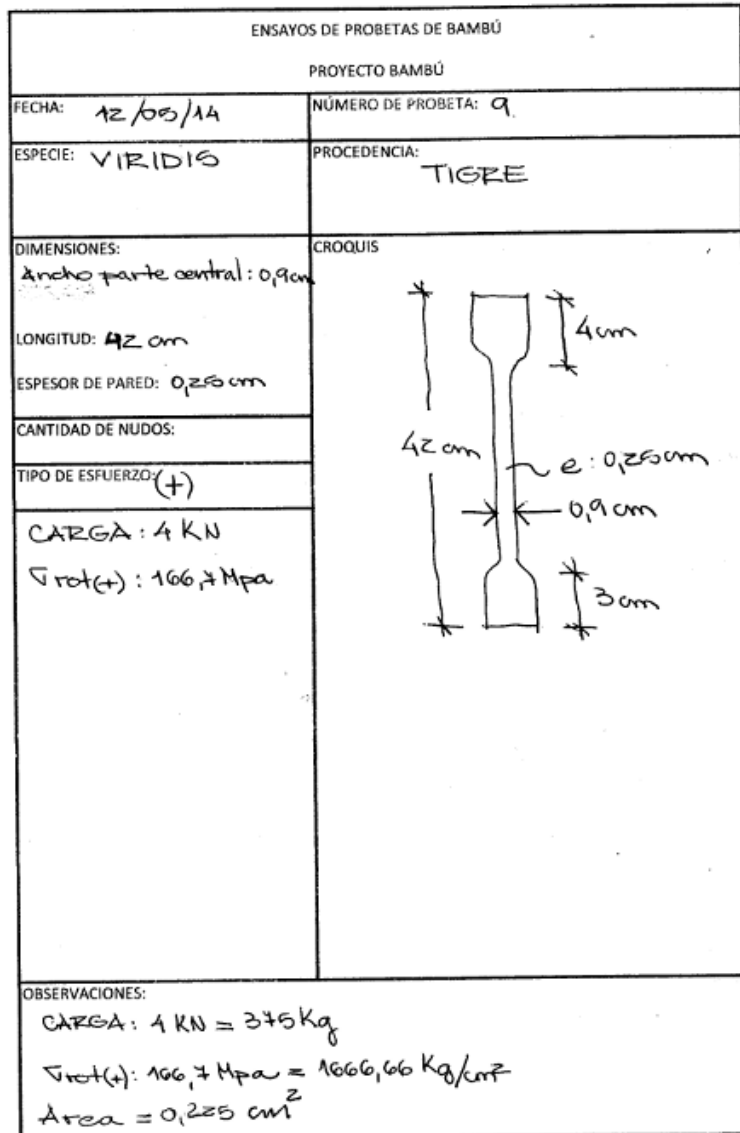 ENSAYOS DE PROBETAS DE BAMBÚ
PROYECTO BAMBÚ
FECHA: 12/05/14
NÚMERO DE PROBETA: 9
ESPECIE: VIRIDIS
PROCEDENCIA:
TIGRE
DIMENSIONES:
Ancho parte central: 0,9cm
LONGITUD: 42 cm
ESPESOR DE PARED: 0,25cm
CANTIDAD DE NUDOS:
TIPO DE ESFUERZO: (+)
CARGA: 4 KN
σrot(+): 166,7 Mpa
CROQUIS
4cm
42 cm
e: 0,25cm
0,9 cm
3 cm
OBSERVACIONES:
CARGA: 4 KN = 375Kg
σrot(+): 166,7 Mpa = 1666,66 Kg/cm²
Area = 0,225 cm²